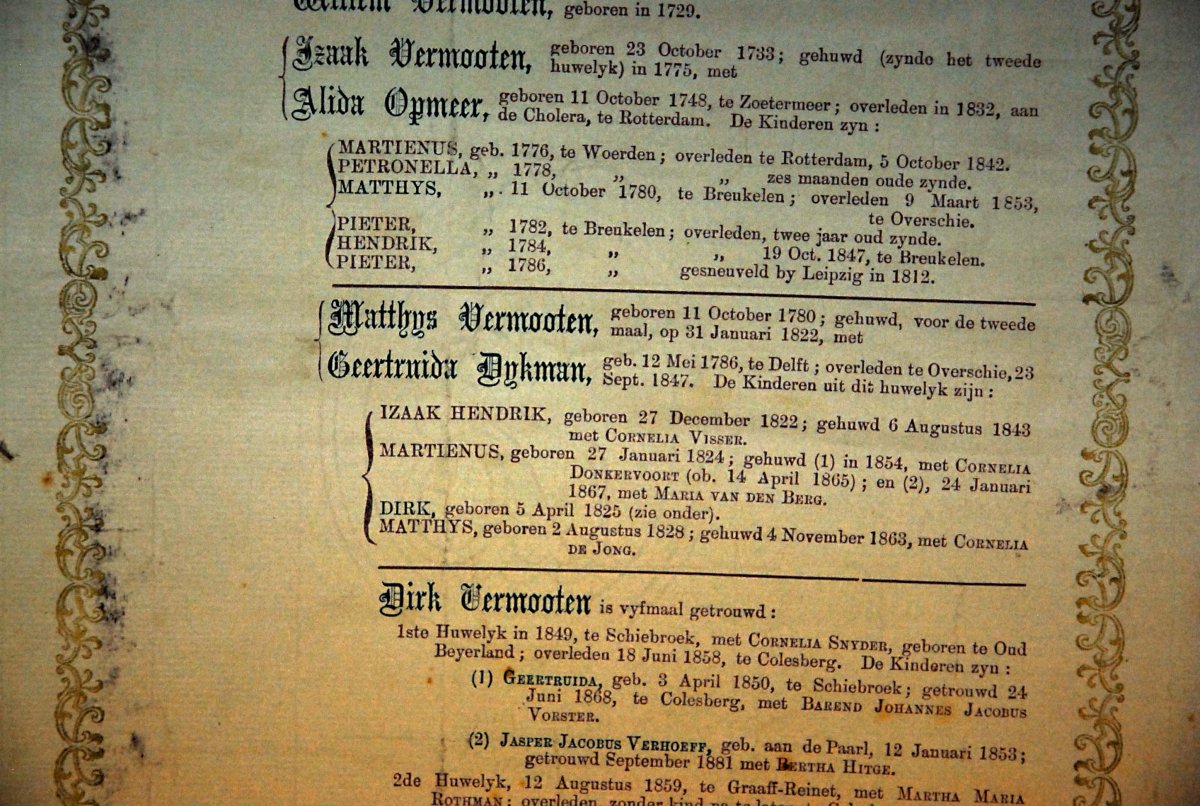 Willem Vermooten, geboren in 1729.
Izaak Vermooten, geboren 23 October 1733; gehuwd (zynde het tweede
huwelyk) in 1775, met
Alida Opmeer, geboren 11 October 1748, te Zoetermeer; overleden in 1832, aan
de Cholera, te Rotterdam. De Kinderen zyn:
MARTIENUS, geb. 1776, te Woerden; overleden te Rotterdam, 5 October 1842.
PETRONELLA, „ 1778, „ „ zes maanden oude zynde.
MATTHYS, „ 11 October 1780, te Breukelen; overleden 9 Maart 1853,
te Overschie.
PIETER, „ 1782, te Breukelen; overleden, twee jaar oud zynde.
HENDRIK, „ 1784, „ „ 19 Oct. 1847, te Breukelen.
PIETER, „ 1786, „ gesneuveld by Leipzig in 1812.
Matthys Vermooten, geboren 11 October 1780; gehuwd, voor de tweede
maal, op 31 Januari 1822, met
Geertruida Dykman, geb. 12 Mei 1786, te Delft; overleden te Overschie, 23
Sept. 1847. De Kinderen uit dit huwelyk zijn:
IZAAK HENDRIK, geboren 27 December 1822; gehuwd 6 Augustus 1843
met CORNELIA VISSER.
MARTIENUS, geboren 27 Januari 1824; gehuwd (1) in 1854, met CORNELIA
DONKERVOORT (ob. 14 April 1865); en (2), 24 Januari
1867, met MARIA VAN DEN BERG.
DIRK, geboren 5 April 1825 (zie onder).
MATTHYS, geboren 2 Augustus 1828; gehuwd 4 November 1863, met CORNELIA
DE JONG.
Dirk Vermooten is vyfmaal getrouwd:
1ste Huwelyk in 1849, te Schiebroek, met CORNELIA SNYDER, geboren te Oud
Beyerland; overleden 18 Juni 1858, te Colesberg. De Kinderen zyn:
(1) GEERTRUIDA, geb. 3 April 1850, te Schiebroek; getrouwd 24
Juni 1868, te Colesberg, met BAREND JOHANNES JACOBUS
VORSTER.
(2) JASPER JACOBUS VERHOEFF, geb. aan de Paarl, 12 Januari 1853;
getrouwd September 1881 met BERTHA HITGE.
2de Huwelyk, 12 Augustus 1859, te Graaff-Reinet, met MARTHA MARIA
ROTHMAN; overleden, zonder kind